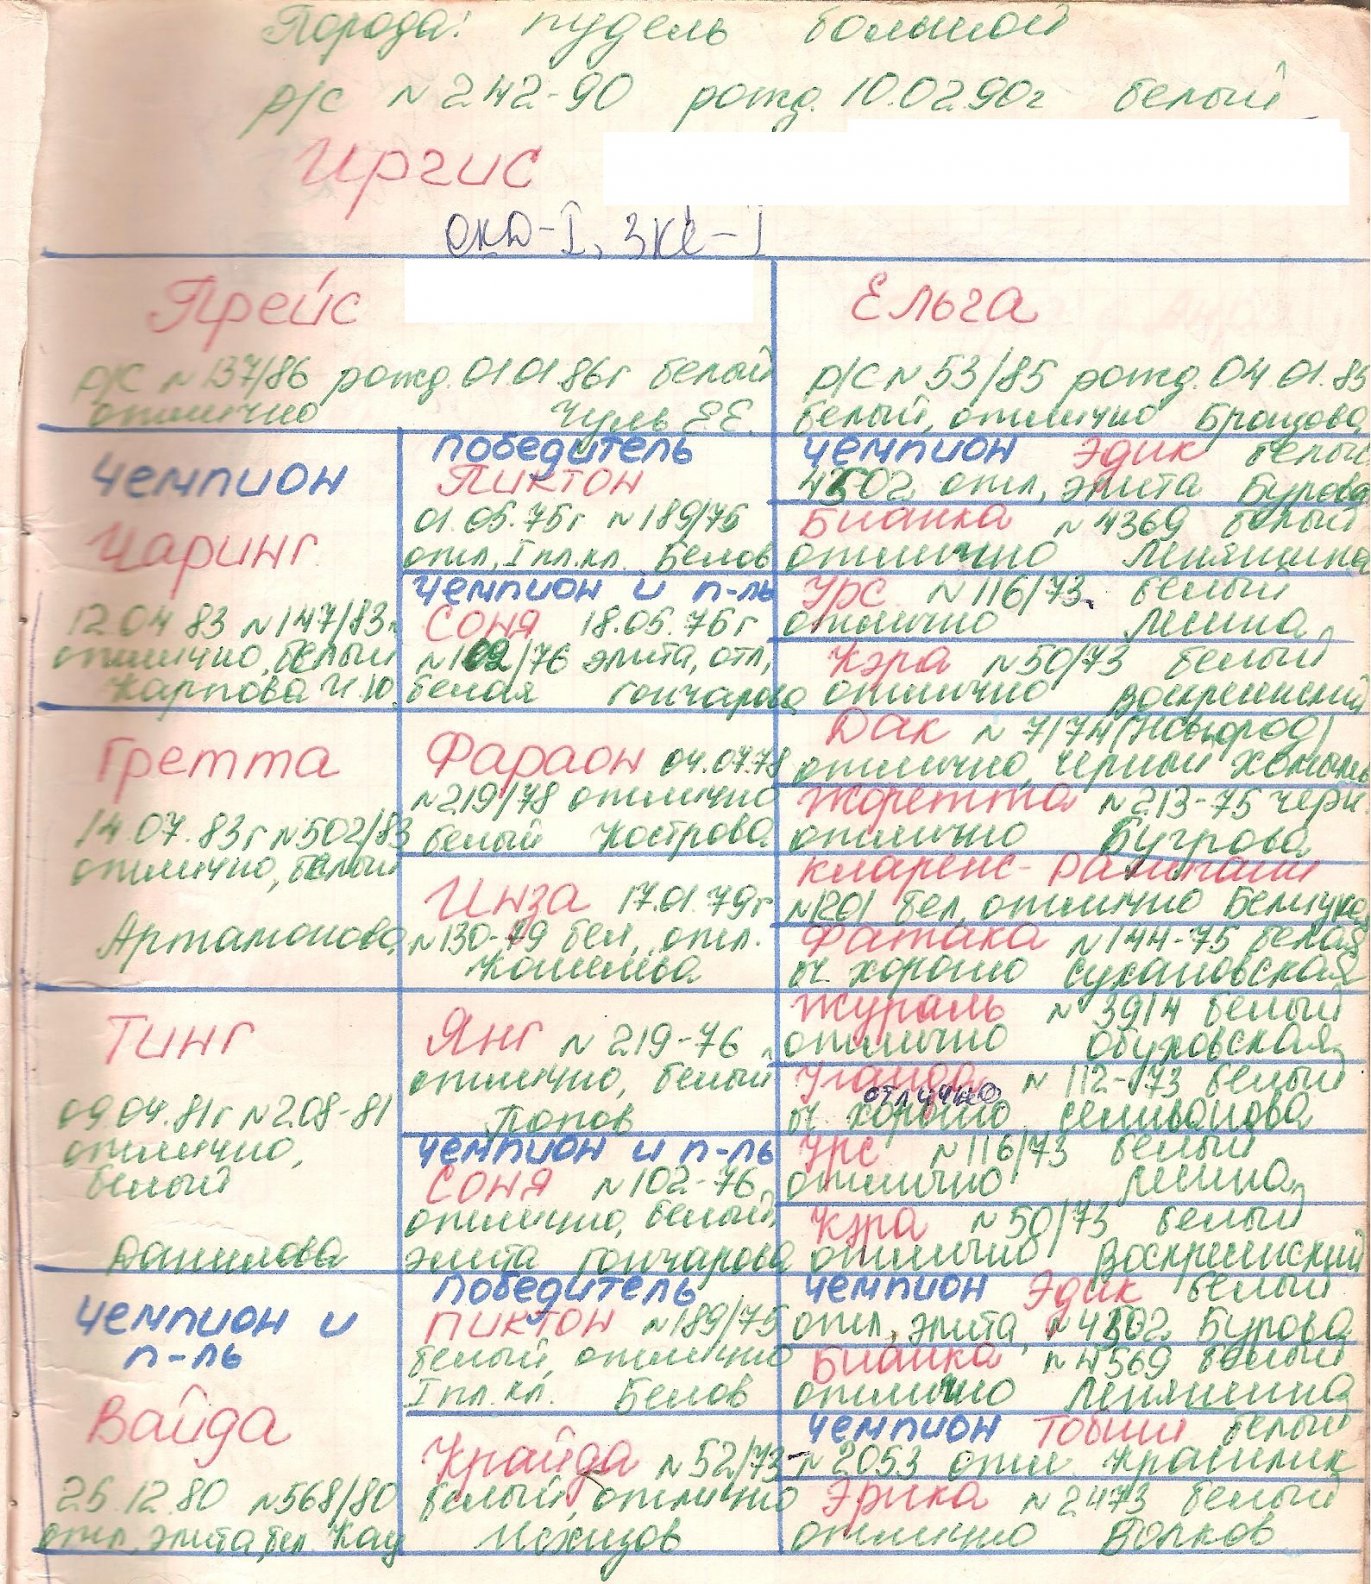 Порода: пудель большой
р/с №242-90 рожд. 10.02.90г белый
Иргис
ОКД-I, ЗКС-I
Прейс
р/с №137/86 рожд. 01.01.86г белый
отлично Чуль Е.Е.
Ельга
р/с №53/85 рожд. 04.01.85
белый, отлично
Чемпион
Чаринг
12.04 83 №147/83г
отлично, белый
Карпова И.Ю.
Победитель
Пиктон
01.05.75г №189/75
отл, I пл.кл. Белов
Чемпион и п-ль
Соня 18.05.76г
№102/76 элита, отл,
белая Гончарова
Чемпион Эдик белый
4502 отл, элита Бурова
Бианка №4369 белый
отлично
Урс №116/73 белый
отлично
Кэра №50/73 белый
отлично Воскресенский
Гретта
14.07.83г №502/83
отлично, белый
Артамонова
Фараон 04.07.78
№219/78 отлично
белый Кострова
Инза 17.01.79г
№130-79 бел, отл.
Кошелева
Дак №7/74 (Новгород)
отлично, черный
Жоретта №213-75 черн
отлично Бугрова
Кларенс-
№1201 бел, отлично
№144-75 белая
оч. хорошо Сухановская
Тинг
09.04.81г №208-81
отлично,
белый
Данилова
Янг №219-76
отлично, белый
Попов
Чемпион и п-ль
Соня №102-76
отлично, белый,
элита Гончарова
Журавль №3914 белый
отлично Обуховская
Уганда №112-73 белый
отлично
оч. хорошо Селиванова
Урс №116/73 белый
отлично
Кэра №50/73 белый
отлично Воскресенский
Чемпион и
п-ль
Вайда
26.12.80 №568/80
отл, элита, бел. Кац
Победитель
Пиктон №189/75
белый, отлично
I пл.кл. Белов
Крайда №52/73
белый, отлично
Чемпион Эдик белый
отл, элита №4502 Бурова
Бианка №4569 белый
отлично
Чемпион Тобиш белый
№2053 отл.
Эрика №2473 белый
отлично Волков